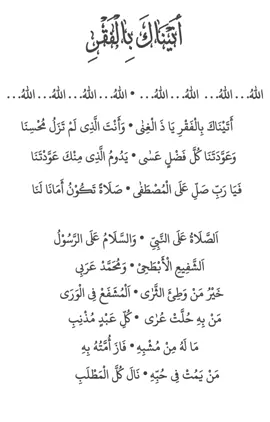 أَتَيْنَاكَ بِالْفَقْرِ
اللهُ... اللهُ... اللهُ... اللهُ... • اللهُ... اللهُ... اللهُ... اللهُ...
أَتَيْنَاكَ بِالْفَقْرِ يَا ذَ الْغِنَى • وَأَنْتَ الَّذِى لَمْ تَزَلْ مُحْسِنَا
وَعَوَّدَتَنَا كُلَّ فَضْلٍ عَسَى • يَدُومُ الَّذِى مِنْكَ عَوَّدْتَنَا
فَيَا رَبِّ صَلِّ عَلَى الْمُصْطَفَى • صَلَاةً تَكُوْنُ أَمَانًا لَنَا
اَلصَّلَاةُ عَلَى النَّبِيِّ • وَالسَّلَامُ عَلَى الرَّسُوْلُ
اَلشَّفِيعِ الْأَبْطَحِيْ • وَمُحَمَّدْ عَرَبِي
خَيْرُ مَنْ وَطِئَ الثَّرَى • اَلْمُشَفَّعْ فِى الْوَرَى
مَنْ بِهِ حُلَّتْ عُرَى • كُلِّ عَبْدٍ مُذْنِبِ
مَا لَهُ مِنْ مُشْبِهِ • فَازَ أُمَّتُهُ بِهِ
مَنْ يَمُتْ فِى حُبِّهِ • نَالَ كُلَّ الْمَطْلَبِ